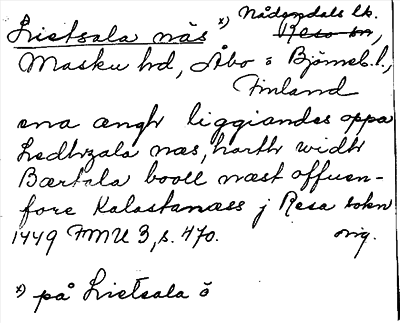 Nådendals lk.
Lietsala näs x) Reso sn,
Masku hd, Åbo o Björneb. l.,
Finland
ena ængh liggiandes oppa
Ledhzala næs, harth widh
Bærtala booll næst offuen-
fore Kalastanæss j Resa sokn
1449 FMU 3, s. 470. orig.
x) på Lietsala ö